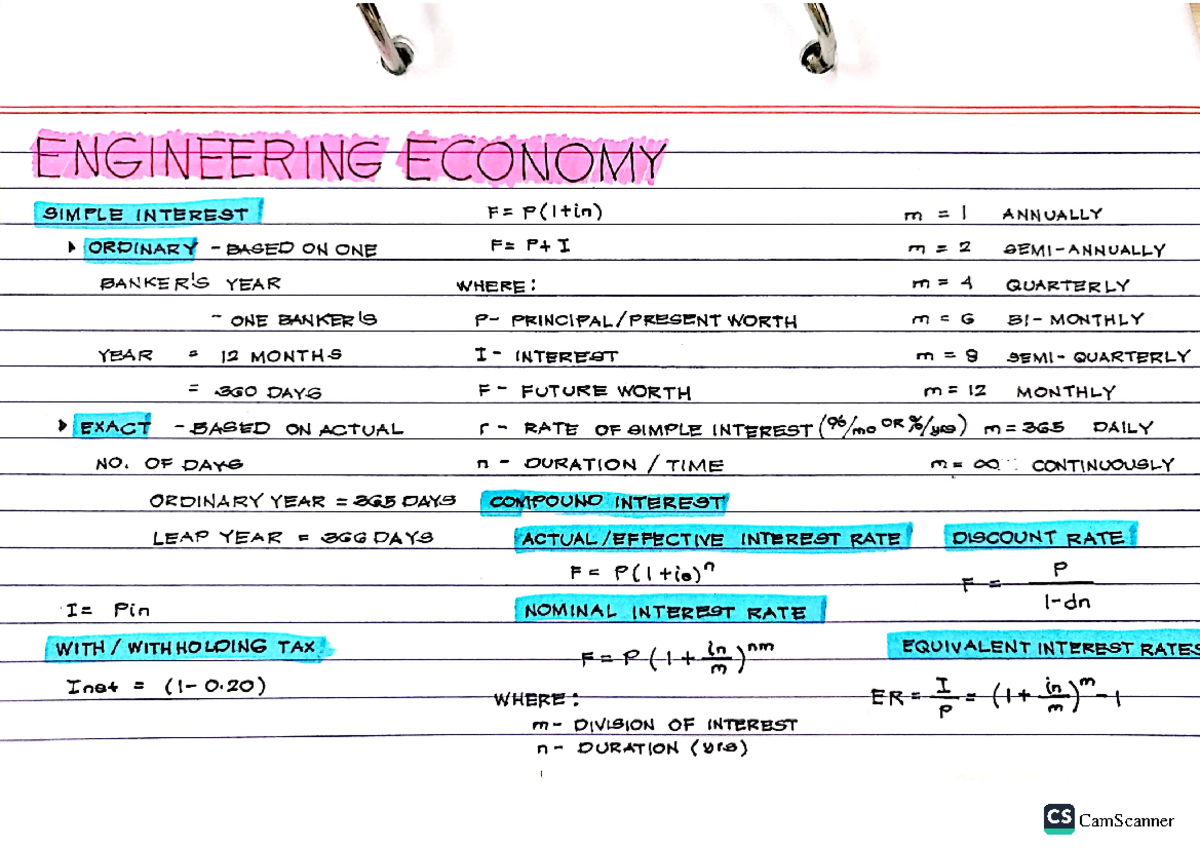 ENGINEERING ECONOMY
SIMPLE INTEREST
▸ ORDINARY - BASED ON ONE
BANKER'S YEAR
- ONE BANKER'S
YEAR = 12 MONTHS
= 360 DAYS
▸ EXACT - BASED ON ACTUAL
NO. OF DAYS
ORDINARY YEAR = 365 DAYS
LEAP YEAR = 366 DAYS
I = Pin
WITH / WITHHOLDING TAX
Inet = (1-0.20)
F = P(1+in)
F = P+ I
WHERE:
P- PRINCIPAL/PRESENT WORTH
I - INTEREST
F - FUTURE WORTH
r - RATE OF SIMPLE INTEREST (%/mo OR %/yrs)
n - DURATION / TIME
COMPOUND INTEREST
ACTUAL/EFFECTIVE INTEREST RATE
F = P(1+ie)^n
NOMINAL INTEREST RATE
F = P(1+ in/m)^nm
WHERE:
m - DIVISION OF INTEREST
n - DURATION (yrs)
m = 1 ANNUALLY
m = 2 SEMI-ANNUALLY
m = 4 QUARTERLY
m = 6 BI-MONTHLY
m = 8 SEMI-QUARTERLY
m = 12 MONTHLY
m = 365 DAILY
m = ∞ CONTINUOUSLY
DISCOUNT RATE
F = P/1-dn
EQUIVALENT INTEREST RATES
ER = I/P = (1+ in/m)^m -1
CS CamScanner